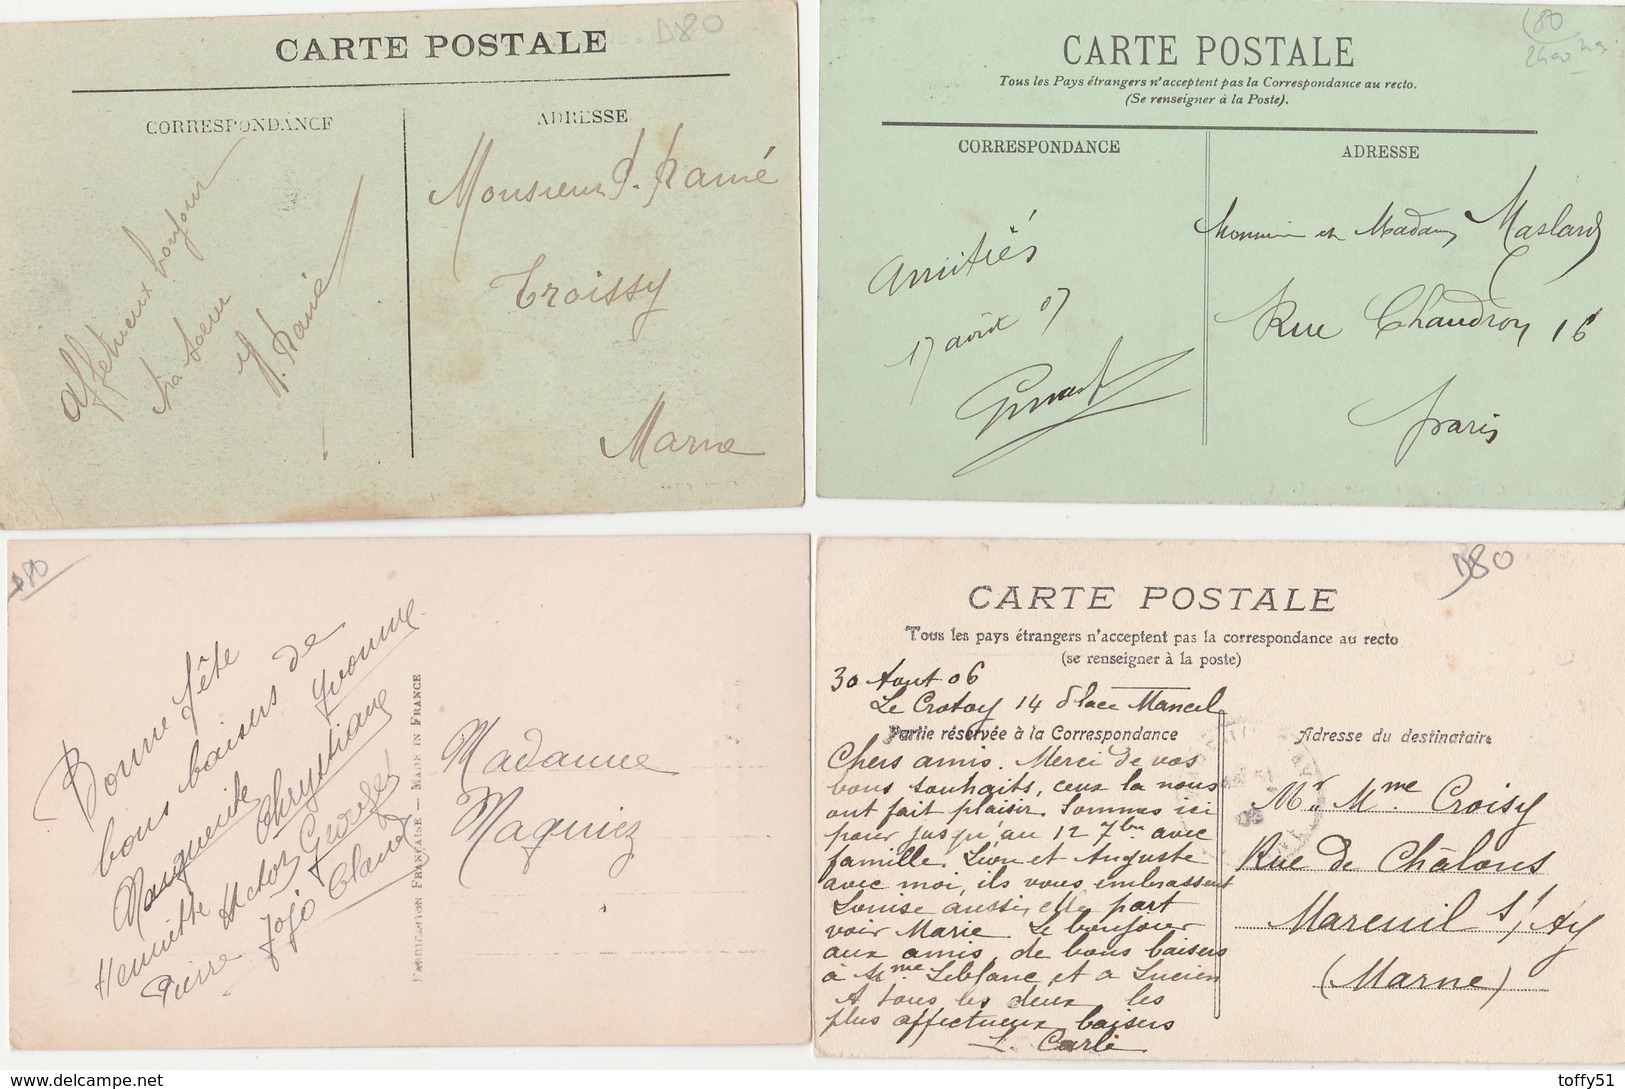 CARTE POSTALE
D80
CORRESPONDANCE
ADRESSE
affectueux bonjour
ta soeur
Monsieur P. Ramé
Troissy
Marne
CARTE POSTALE
80
Tous les Pays étrangers n'acceptent pas la Correspondance au recto.
(Se renseigner à la Poste).
CORRESPONDANCE
ADRESSE
Amitiés
17 août 07
Monsieur et Madame Maslard
Rue Chaudron 16
Paris
80
Bonne fête
bons baisers de
Marguerite Chrystiane Yvonne
Henriette George
Pierre Jojo Claude
FABRICATION FRANÇAISE — MADE IN FRANCE
Madame
Maquiez
D80
CARTE POSTALE
Tous les pays étrangers n'acceptent pas la correspondance au recto
(se renseigner à la poste)
30 Aout 06
Le Crotoy 14 place Mancel
Partie réservée à la Correspondance
Adresse du destinataire
Chers amis. Merci de vos
bons souhaits, ceux la nous
ont fait plaisir. Sommes ici
pour jusqu'au 12 7bre avec
famille. Léon et Auguste
avec moi, ils vous embrassent
Louise aussi, elle part
voir Marie. Le bonjour
aux amis, de bons baisers
à Mme Leblanc et a Lucien
A tous les deux les
plus affectueux baisers
L. Carlé
Mr. Mme Croisy
Rue de Châlons
Mareuil s/ Ay
(Marne)
toffy51